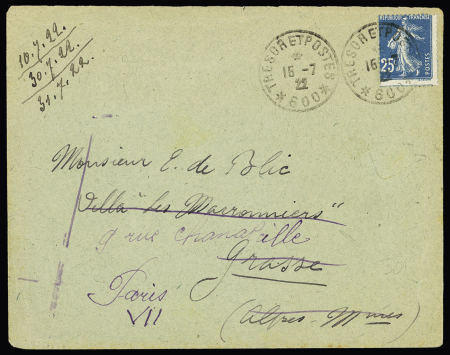 10.7.22.
30.7.22.
31.7.22.
TRESOR ET POSTES
15 -7
22
* 600 *
TRESOR ET POSTES
15
* 600
REPUBLIQUE FRANCAISE
25c
POSTES
Monsieur E. de Blic
Villa "Les Marronniers"
9 rue Chanaleille
Grasse
Paris
VII
(Alpes-Mmes)